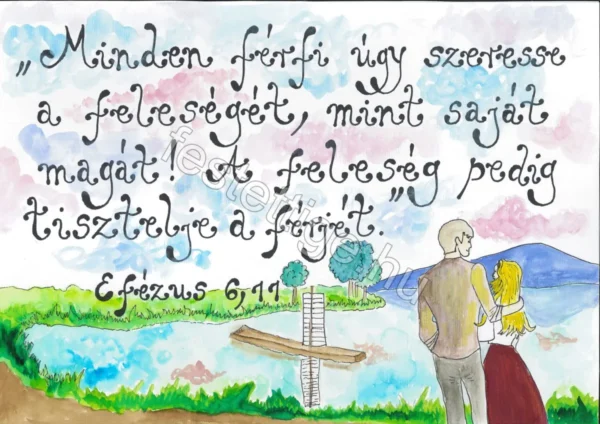 „Minden férfi úgy szeresse
a feleségét, mint saját
magát! A feleség pedig
tisztelje a férjét.”
Efézus 6,11
festettige.hu